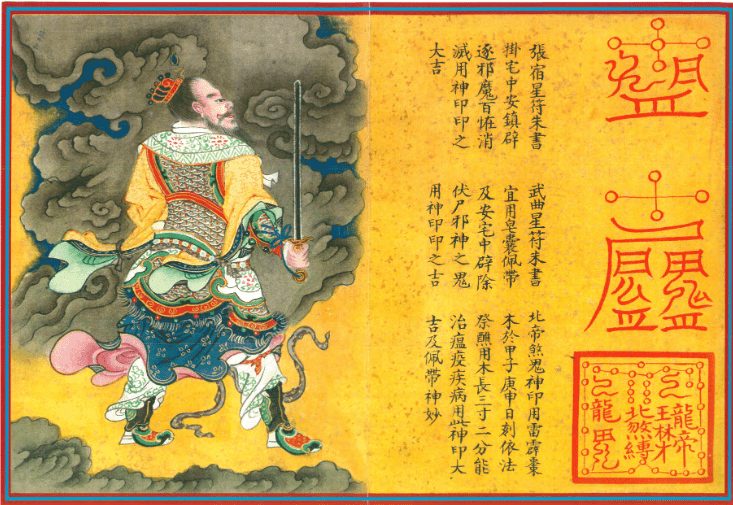 張宿星符朱書
掛宅中安鎮辟
逐邪魔百怪消
滅用神印印之
大吉
武曲星符朱書
宜用皂囊佩帶
及安宅中辟除
伏尸邪神之鬼
用神印印之吉
北帝煞鬼神印用雷霹棗
木於甲子庚申日刻依法
祭醮用木長三寸二分能
治瘟疫疾病用此神印大
吉及佩帶神妙